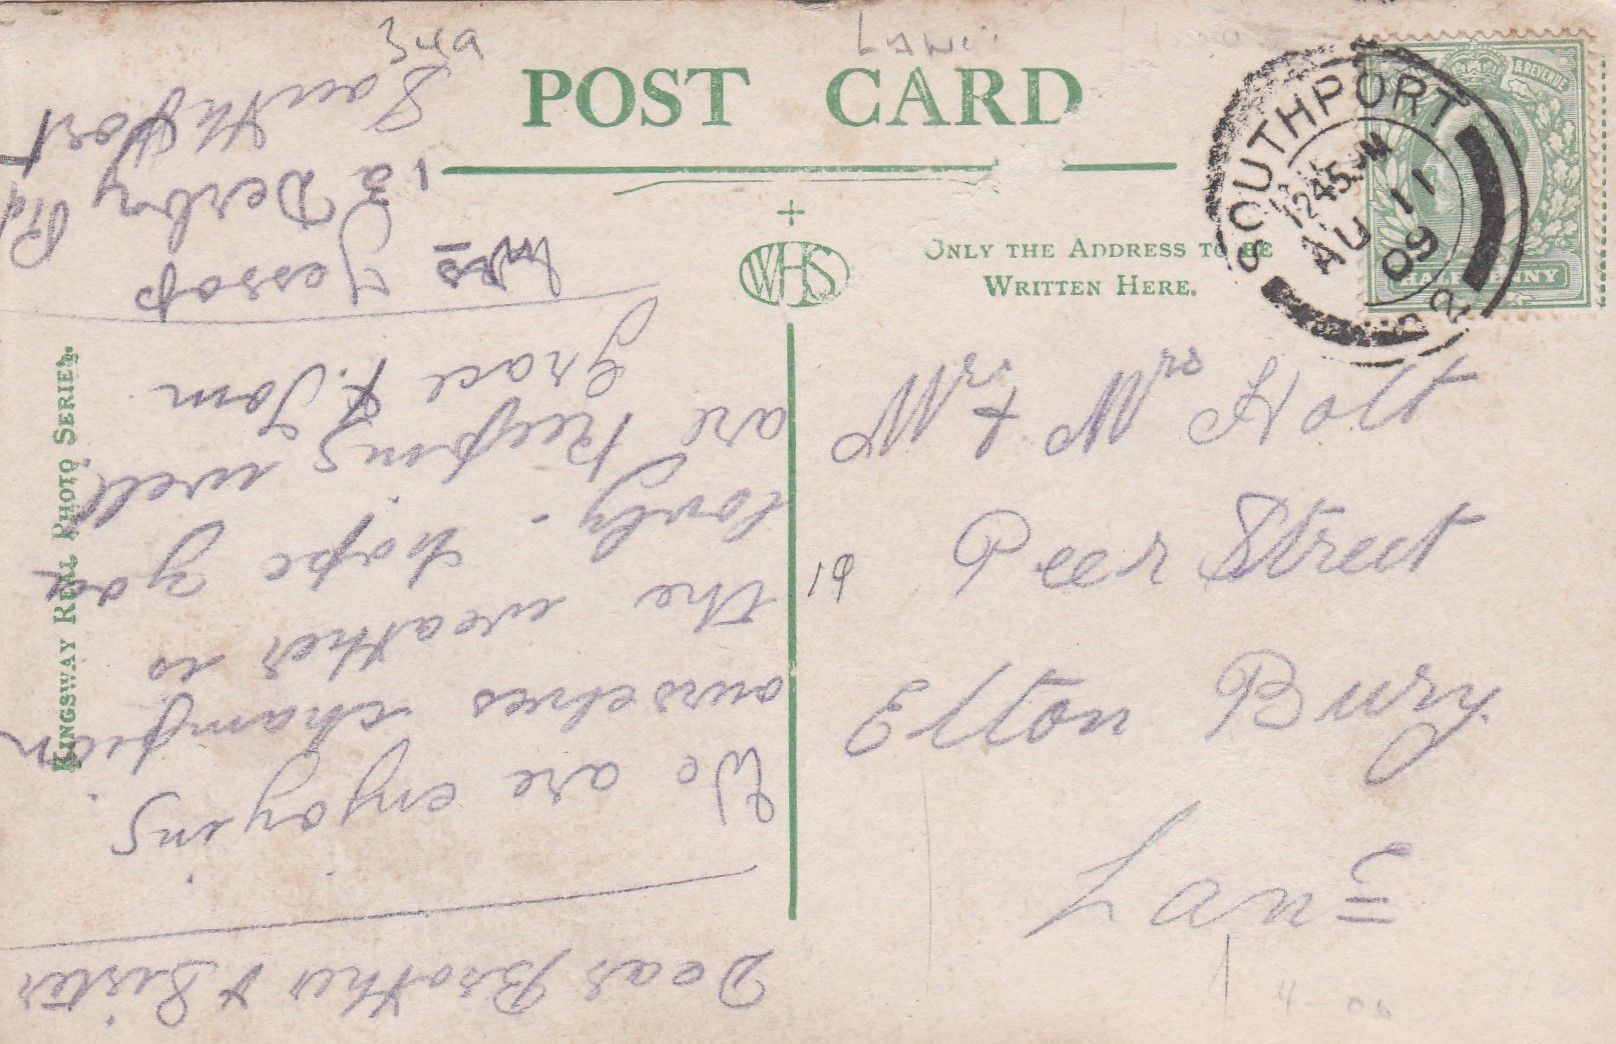 349
LANC
POST CARD
WHS
ONLY THE ADDRESS TO BE
WRITTEN HERE.
SOUTHPORT
12 45 PM
AU 11
09
2
& REVENUE
HALFPENNY
KINGSWAY REAL PHOTO SERIES.
Mr & Mrs Holt
19 Peer Street
Elton Bury
Lanc
4-00
Dear Brother & Sister
We are enjoying
ourselves champion.
the weather is
lovly - hope you
are keeping well.
Grace & Tom
Mrs Jessop
13 Derby Rd
Southport